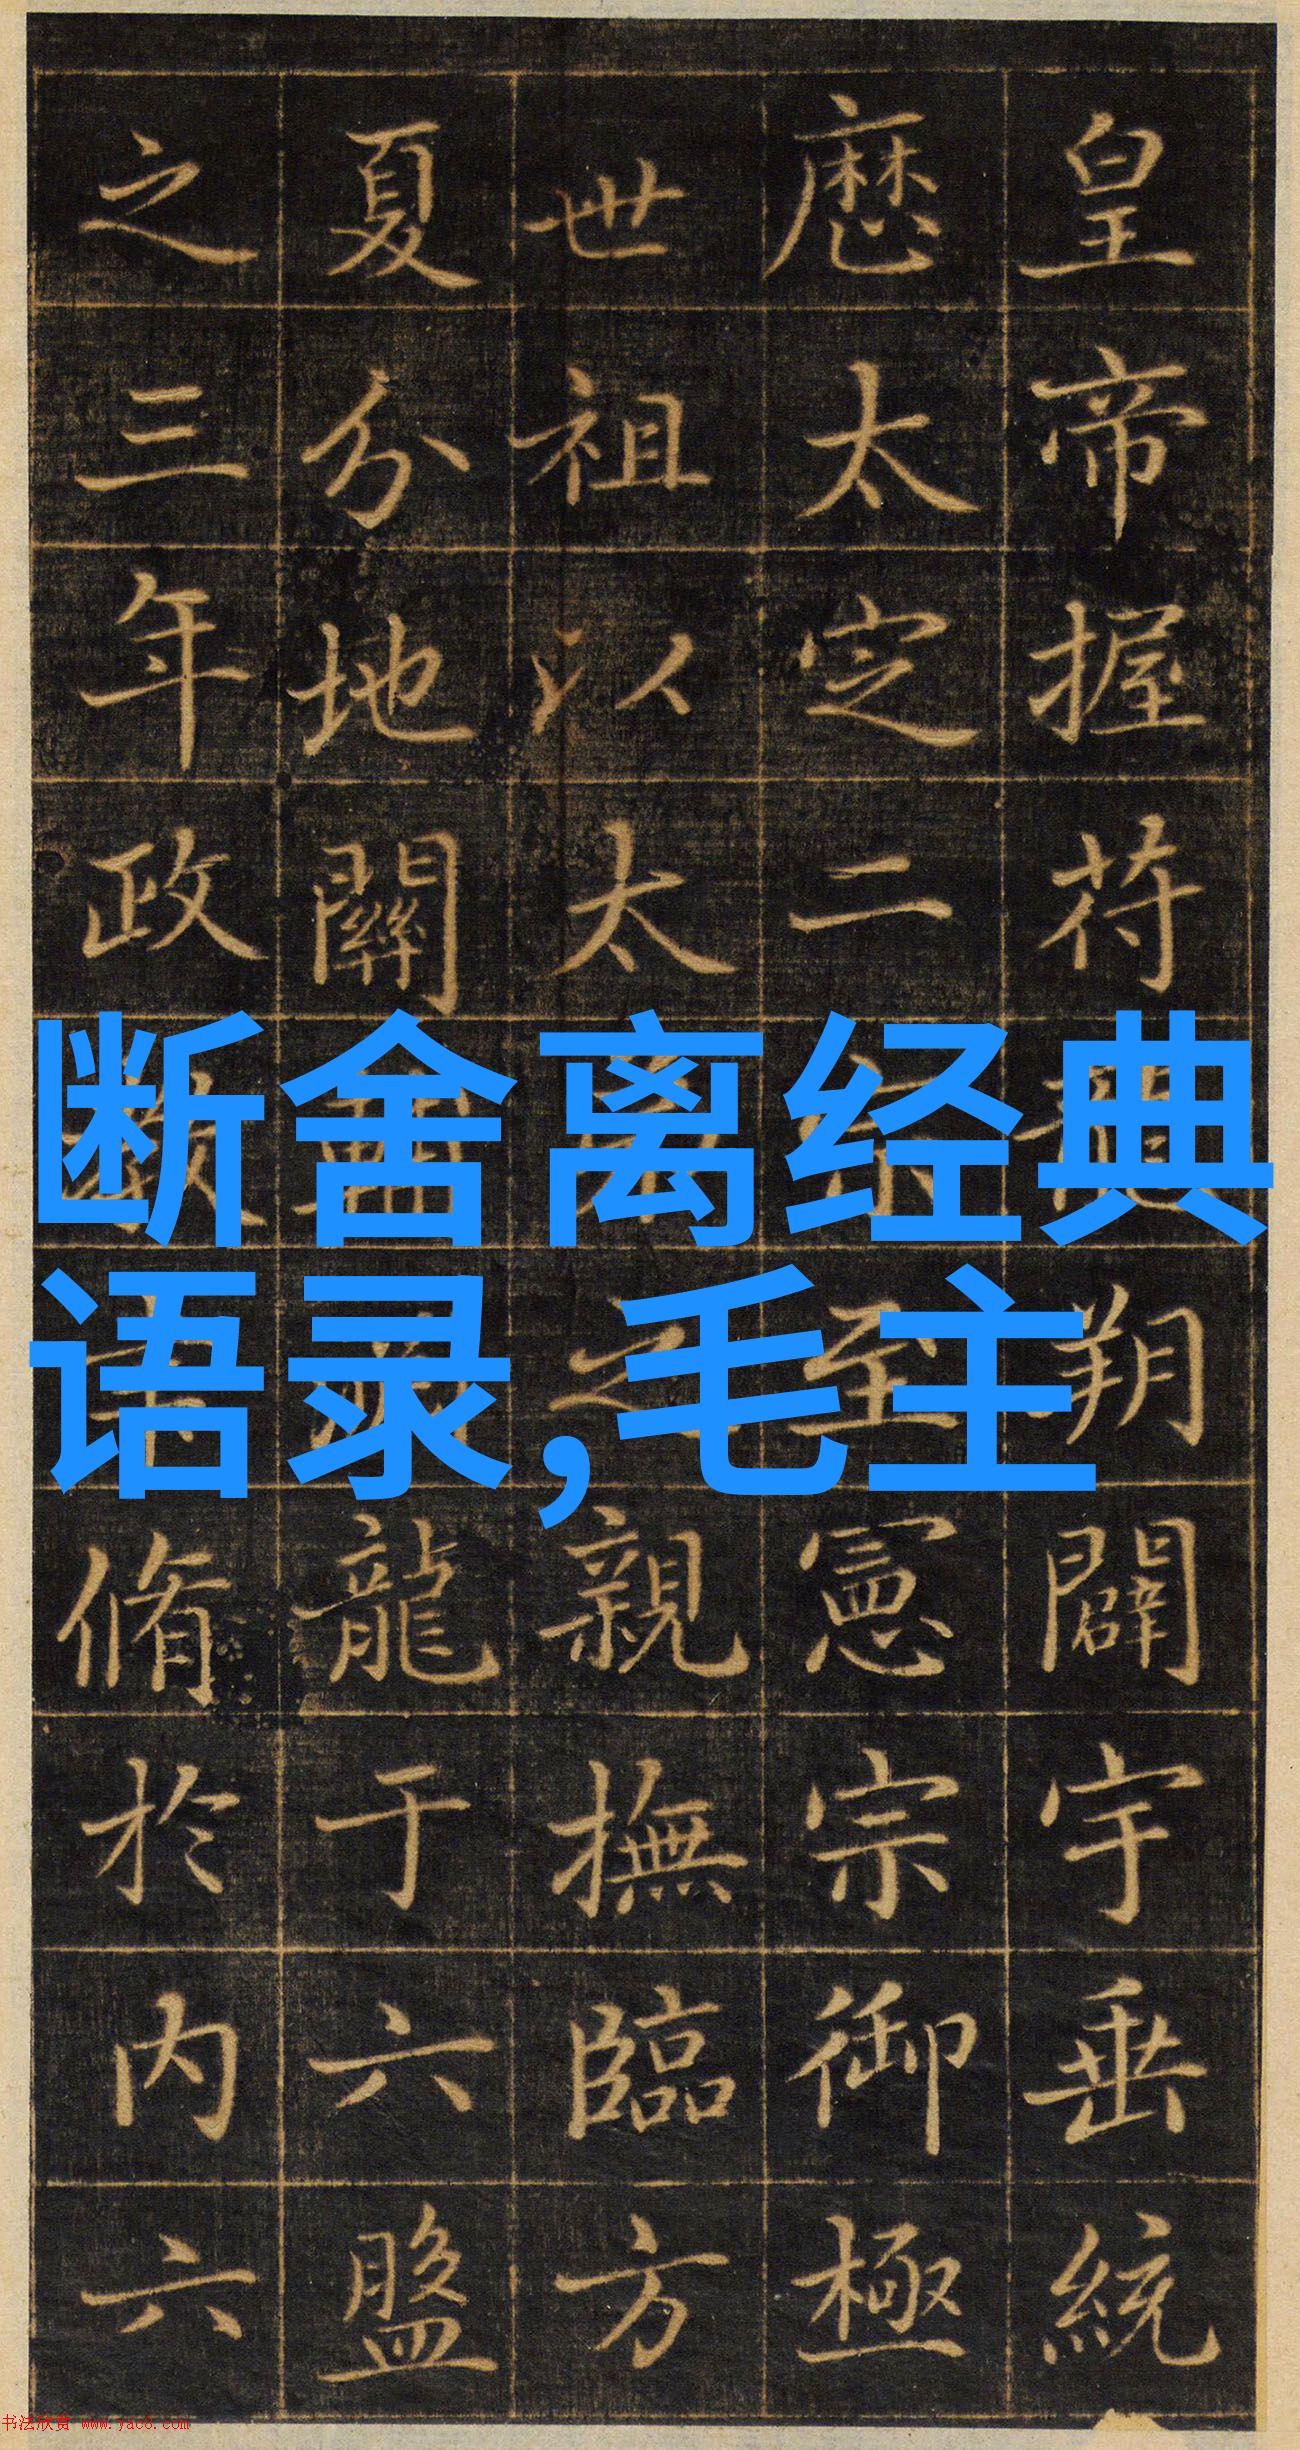 皇帝握苻朔闢宇垂統
厯太定二宗至憲宗御極
世祖以太之親撫臨方
夏分地關龍于六盤
之三年政教脩於内六
断舍离经典
语录,毛主
书法欣赏 www.yac8.com